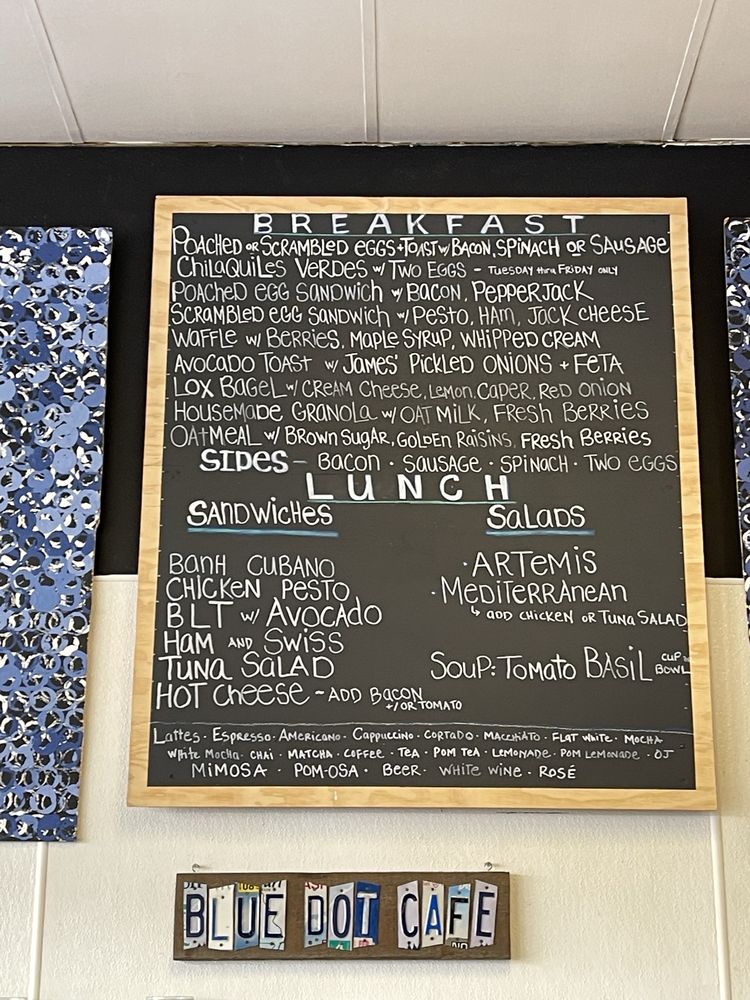 BREAKFAST
POACHED OR SCRAMBLED EGGS + TOAST w/ BACON, SPINACH OR SAUSAGE
CHILAQUILES VERDES w/ TWO EGGS - TUESDAY thru FRIDAY ONLY
POACHED EGG SANDWICH w/ BACON, PEPPERJACK
SCRAMBLED EGG SANDWICH w/ PESTO, HAM, JACK CHEESE
WAFFLE w/ BERRIES, MAPLE SYRUP, WHIPPED CREAM
AVOCADO TOAST w/ JAMES' PICKLED ONIONS + FETA
LOX BAGEL w/ CREAM CHEESE, LEMON, CAPER, RED ONION
HOUSEMADE GRANOLA w/ OAT MILK, FRESH BERRIES
OATMEAL w/ BROWN SUGAR, GOLDEN RAISINS, FRESH BERRIES
SIDES - BACON · SAUSAGE · SPINACH · TWO EGGS
LUNCH
SANDWICHES
BANH CUBANO
CHICKEN PESTO
BLT w/ AVOCADO
HAM AND SWISS
TUNA SALAD
HOT CHEESE ~ ADD BACON
+/OR TOMATO
SALADS
· ARTEMIS
· MEDITERRANEAN
↳ ADD CHICKEN OR TUNA SALAD
SOUP: TOMATO BASIL CUP
BOWL
LATTES · ESPRESSO · AMERICANO · CAPPUCCINO · CORTADO · MACCHIATO · FLAT WHITE · MOCHA
WHITE MOCHA · CHAI · MATCHA · COFFEE · TEA · POM TEA · LEMONADE · POM LEMONADE · OJ
MIMOSA · POM-OSA · BEER · WHITE WINE · ROSÉ
BLUE DOT CAFE